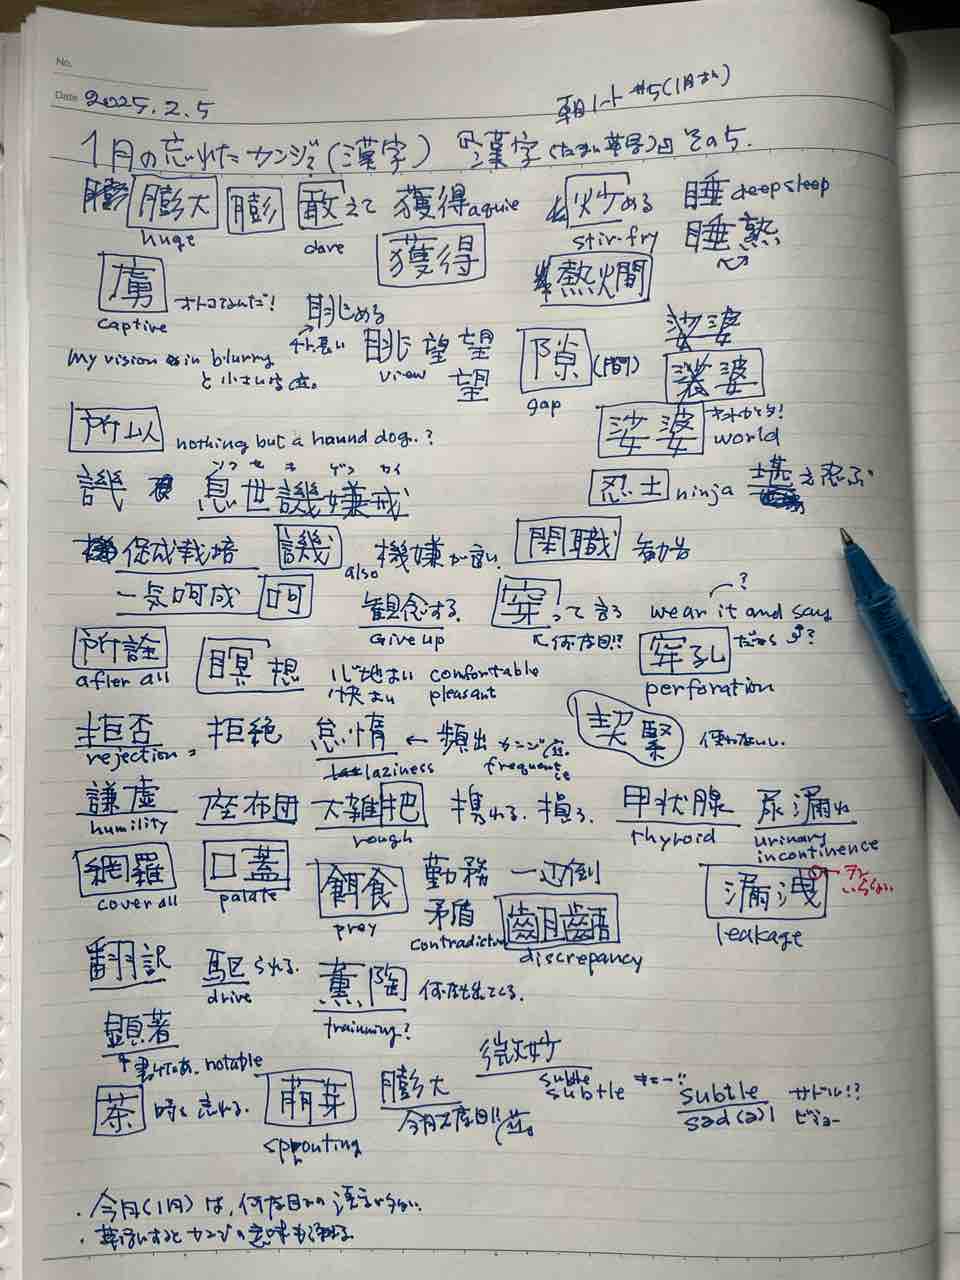 No.
Date 2025.2.5
朝ノート #5(1月まとめ)
1月の忘れたカンジ(漢字) 漢字(たまに英語) その5.
膨 膨大 膨 敢えて 獲得 aquie 炒める 睡 deep sleep
huge dare 獲得 stir-fry 睡熟
虜 オトコなんだ! 眺める 熱燗
captive
my vision is in blurry 眺望 望 隙(間) 娑婆
と小さい字 view 望 gap 裟婆
所以 nothing but a haund dog..? 娑婆 world
譏 息世譏嫌戒 忍土 ninja 堪え忍ぶ
促成栽培 譏 also 機嫌が言い. 閑職
一気呵成 呵 観念する. 穿って言う wear it and say ?
give up ←何度目!?
所詮 瞑想 心地よい comfortable 穿孔 だから ?
after all 快よい pleasant perforation
拒否 拒絶 怠惰 ← 頻出 カンジ 喫緊 使わないし.
rejection laziness frequent
謙虚 座布団 大雑把 損う. 甲状腺 尿漏れ
humility rough thyroid urinary incontinence
網羅 口蓋 餌食 勤務 一辺倒 漏洩 テン いらない
cover all palate prey 矛盾 齟齬 leakage
contradiction discrepancy
翻訳 駆られる. 薫陶 何度も出てくる.
drive trainning?
顕著 微妙
notable subtle
subtle subtle サドル!?
茶 時々忘れる. 萌芽 膨大 sad(a)l ビミョー
spprouting 今月2度目!!
・今月(1月)は、何度目かの漢字が多い.
・英語にするとカンジの意味も深まる